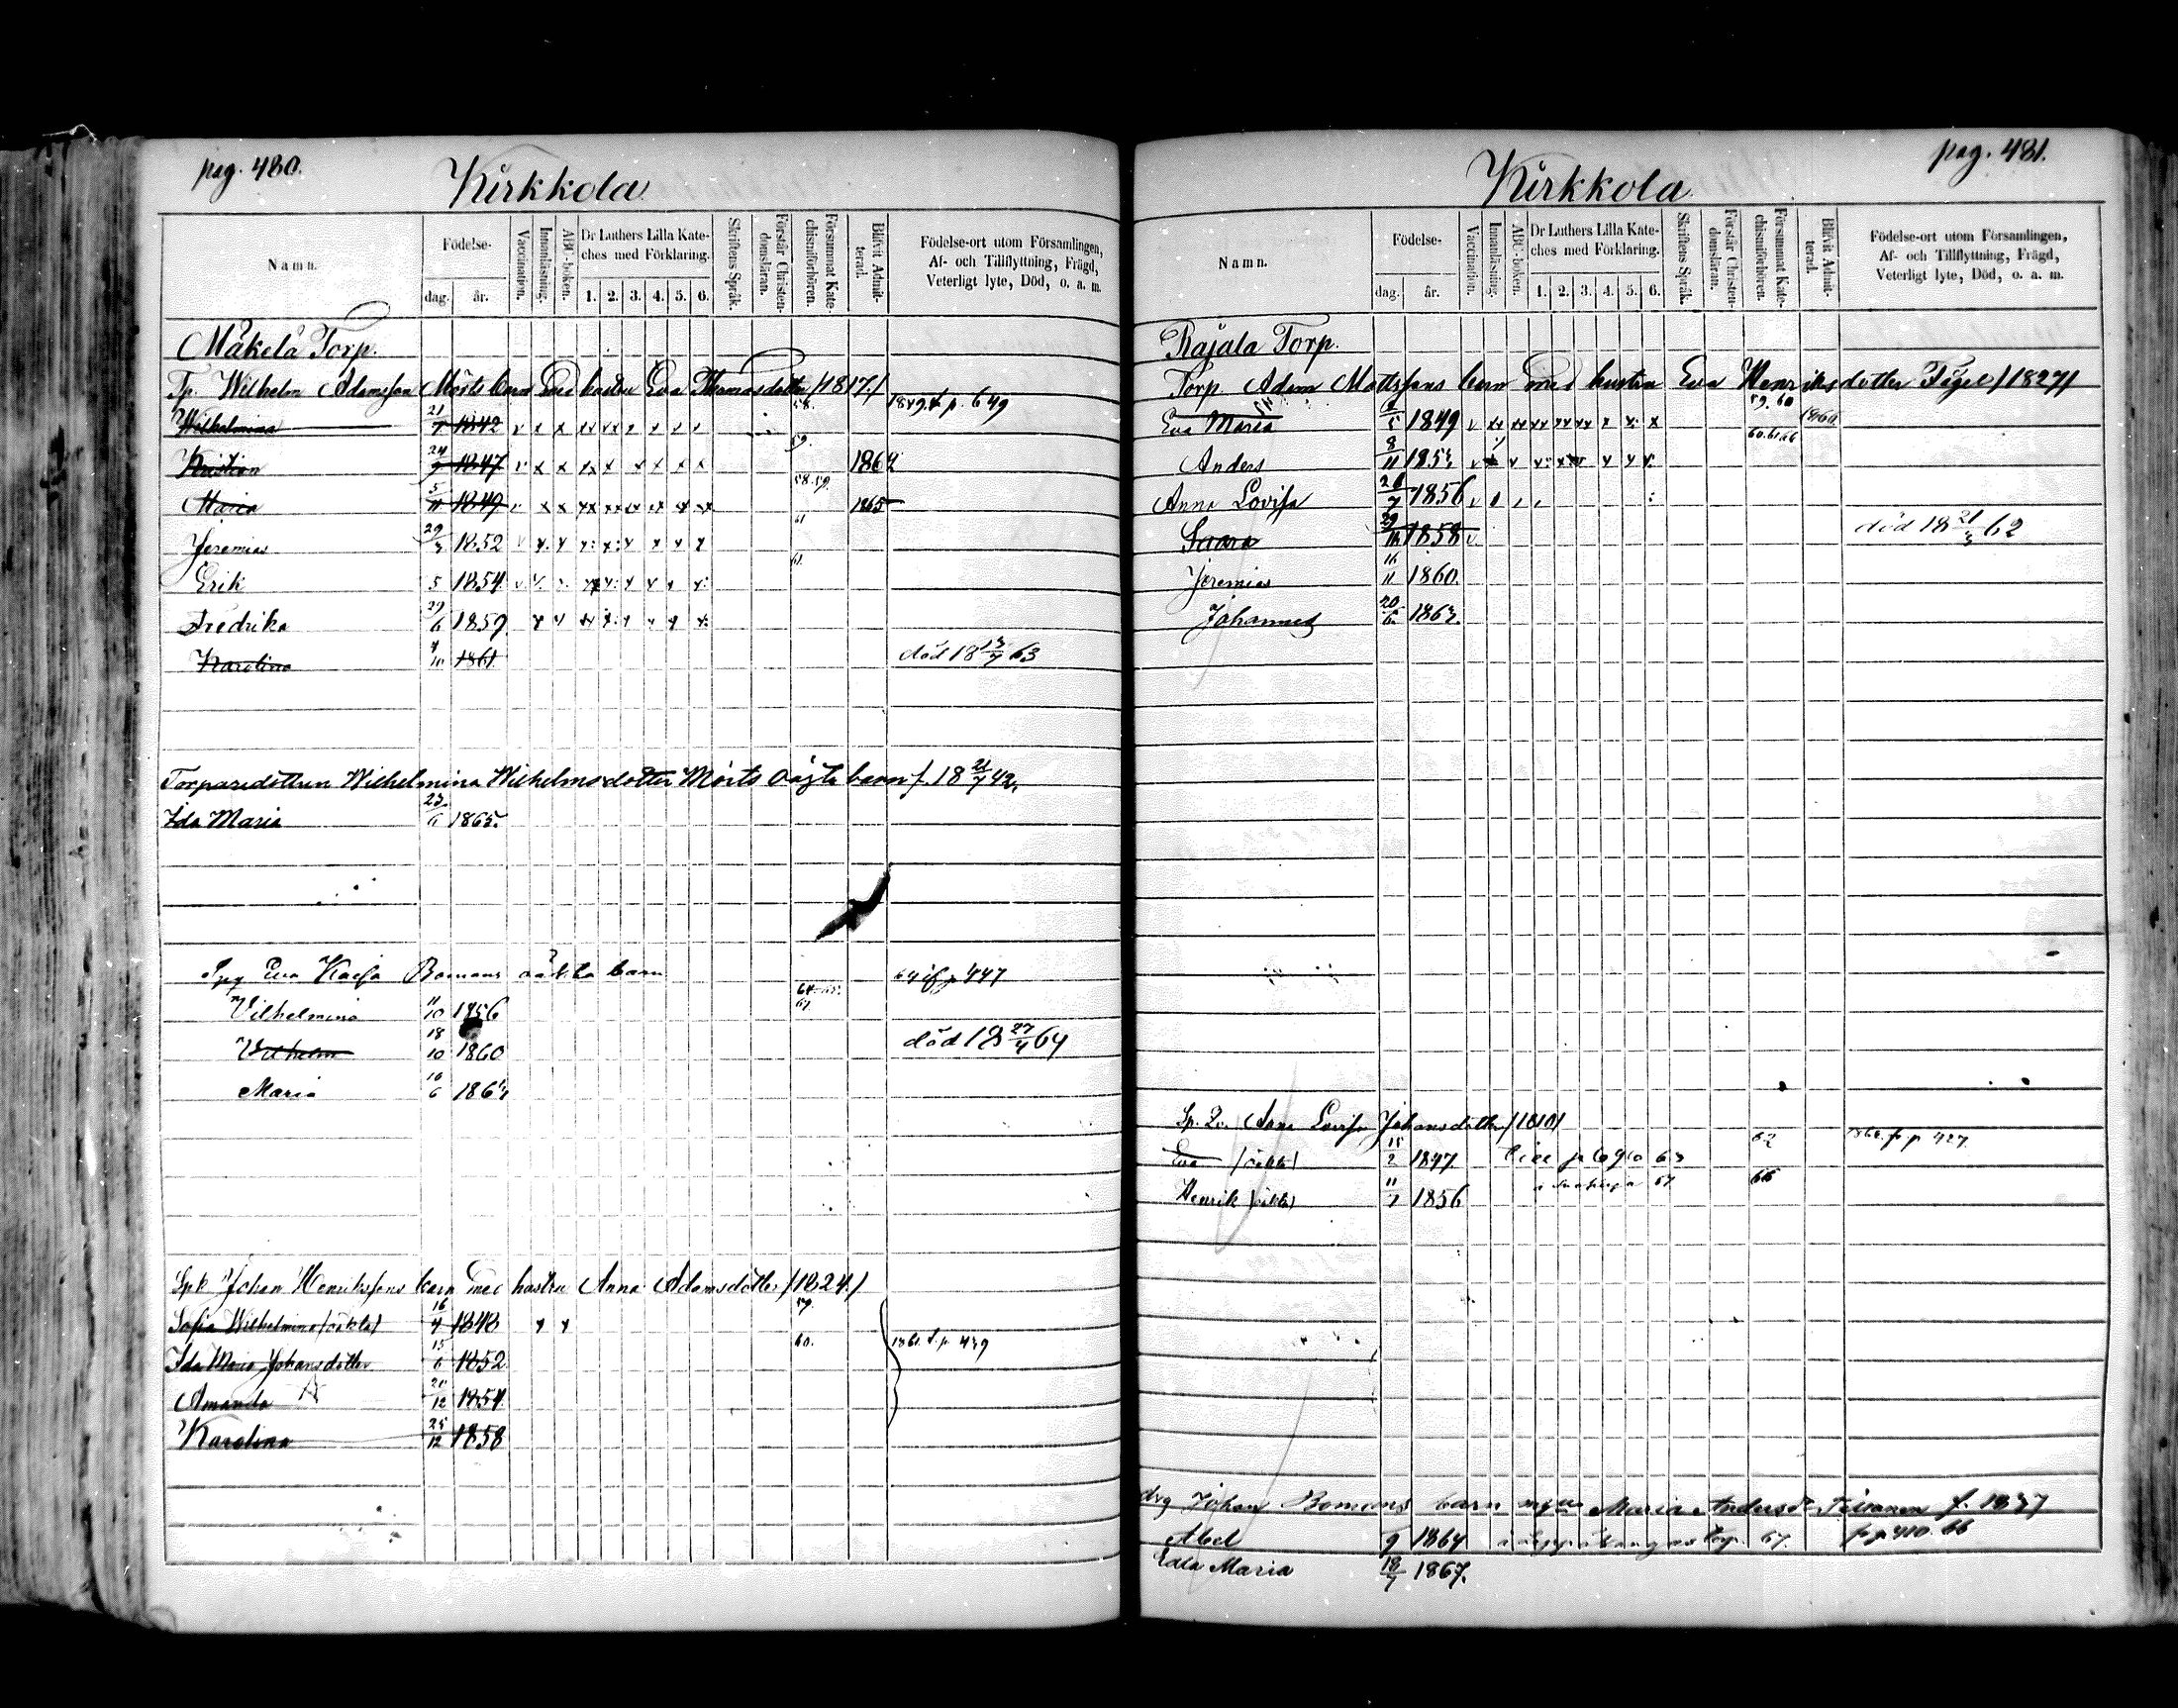 pag. 480.
Kirkkola
Namn.
Födelse-
dag.
år.
Vaccination.
Innanläsning.
ABC-boken.
Dr Luthers Lilla Kate-
ches med Förklaring.
1. 2. 3. 4. 5. 6.
Skriftens Språk.
Förstår Christen-
domsläran.
Försummat Kate-
chismiförhören.
Blifvit Admit-
terad.
Födelse-ort utom Församlingen,
Af- och Tillflyttning, Frägd,
Veterligt lyte, Död, o. a. m.
Mäkelä Torp.
Tp. Wilhelm Adamsson Mörts barn med hustru Eva Thomasdotter /1817./
Wilhelmina 21/7 1842 58. 1859 f. p. 649
Kristian 24/9 1847 59. 1864
Maria 5/11 1849 58. 59. 1865
Jeremias 29/3 1852 61
Erik 5 1854 61.
Fredrika 29/6 1859
Karolina 4/10 1861 död 18 13/7 63
Torparedottren Wilhelmina Wilhelmsdotter Mörts oägta barn f. 18 21/7 42.
Ida Maria 23/6 1865.
Eva Kaisa Bomans oäkta barn p 447
Vilhelmina 11/10 1856 64. 65. 67.
Vilhelm 18/10 1860 död 18 27/4 64
Maria 10/6 1864
Spk Johan Henrikssons barn med hustru Anna Adamsdotter /1824./
Sofia Wilhelmina (oäkta) 16/4 1848 59.
Ida Maria Johansdotter 15/6 1852 60. 1861 f. p. 439
Amanda 20/12 1854
Karolina 25/12 1858
pag. 481.
Kirkkola
Namn.
Födelse-
dag.
år.
Vaccination.
Innanläsning.
ABC-boken.
Dr Luthers Lilla Kate-
ches med Förklaring.
1. 2. 3. 4. 5. 6.
Skriftens Språk.
Förstår Christen-
domsläran.
Försummat Kate-
chismiförhören.
Blifvit Admit-
terad.
Födelse-ort utom Församlingen,
Af- och Tillflyttning, Frägd,
Veterligt lyte, Död, o. a. m.
Rajala Torp.
Torp. Adam Mattssons barn med hustru Eva Henriksdotter Fågel /1827/
Eva Maria 1849 59. 60 1866
Anders 8/11 1853 60. 61. 66
Anna Lovisa 26/7 1856
Saara 29/10 1858 död 18 21/3 62
Jeremias 16/11 1860.
Johannes 20/6 1863.
Anna Lovisa Johansdotter /1810/
Eva (oäkta) 15/2 1847 62 f p 427
Henrik (oäkta) 11/7 1856 57 66
drg Johan Bomans barn Maria Andersdr f. 1837
Abel 9 1864 67. p 410 66
Edla Maria 18/7 1867.